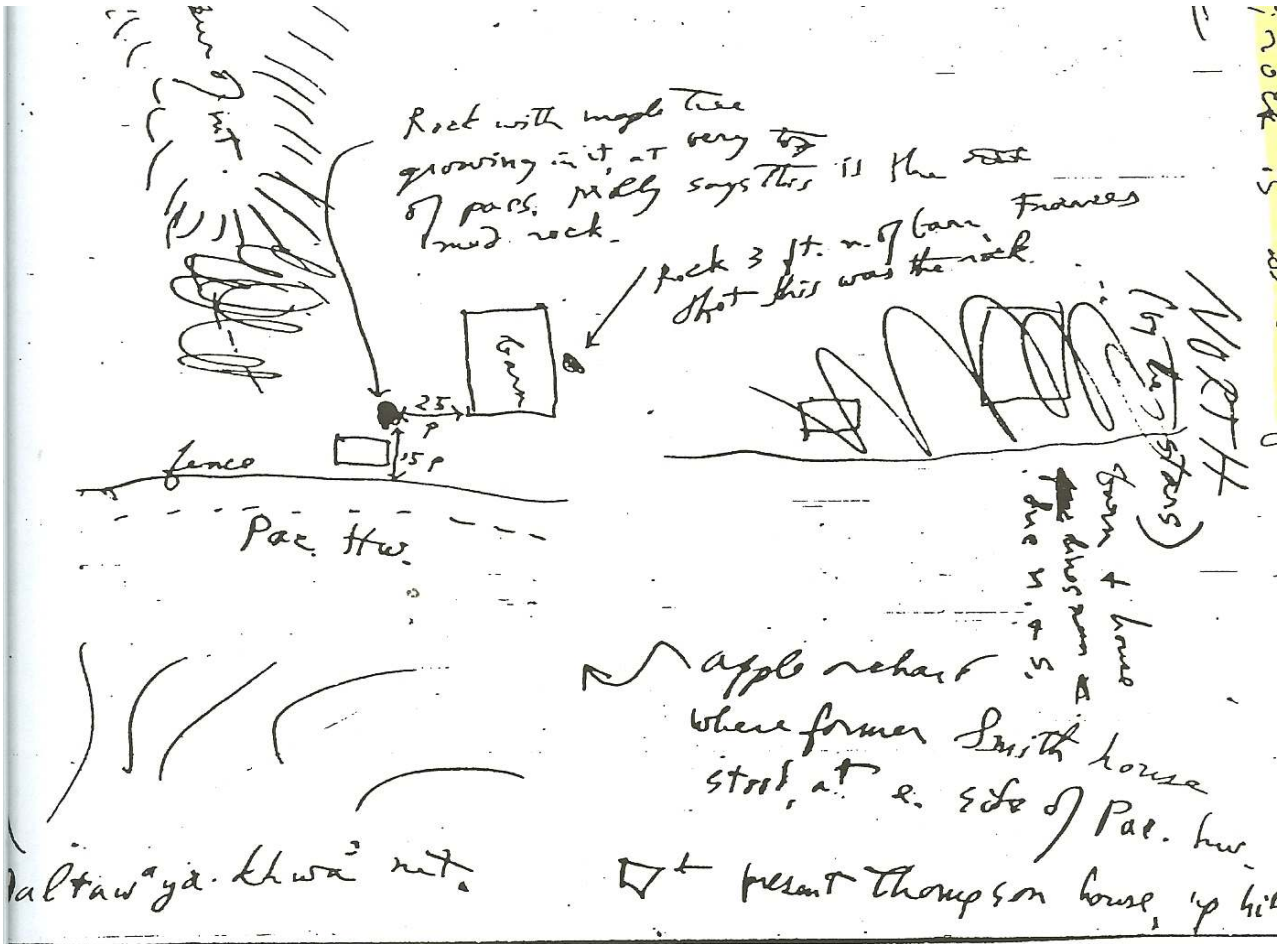 Rock with maple tree
growing in it, at very top
of pass. Molly says this is the
med rock.
Rock 3 ft. n. of barn, Frances
thot this was the rock.
barn
25
p
15 p
fence
Pac. Hw.
NORTH
(by the stars)
barn + house
due n. + s.
apple orchard
where former Smith house
stood, at e. side of Pac. hw.
present Thompson house, up
mt.
mt.
is